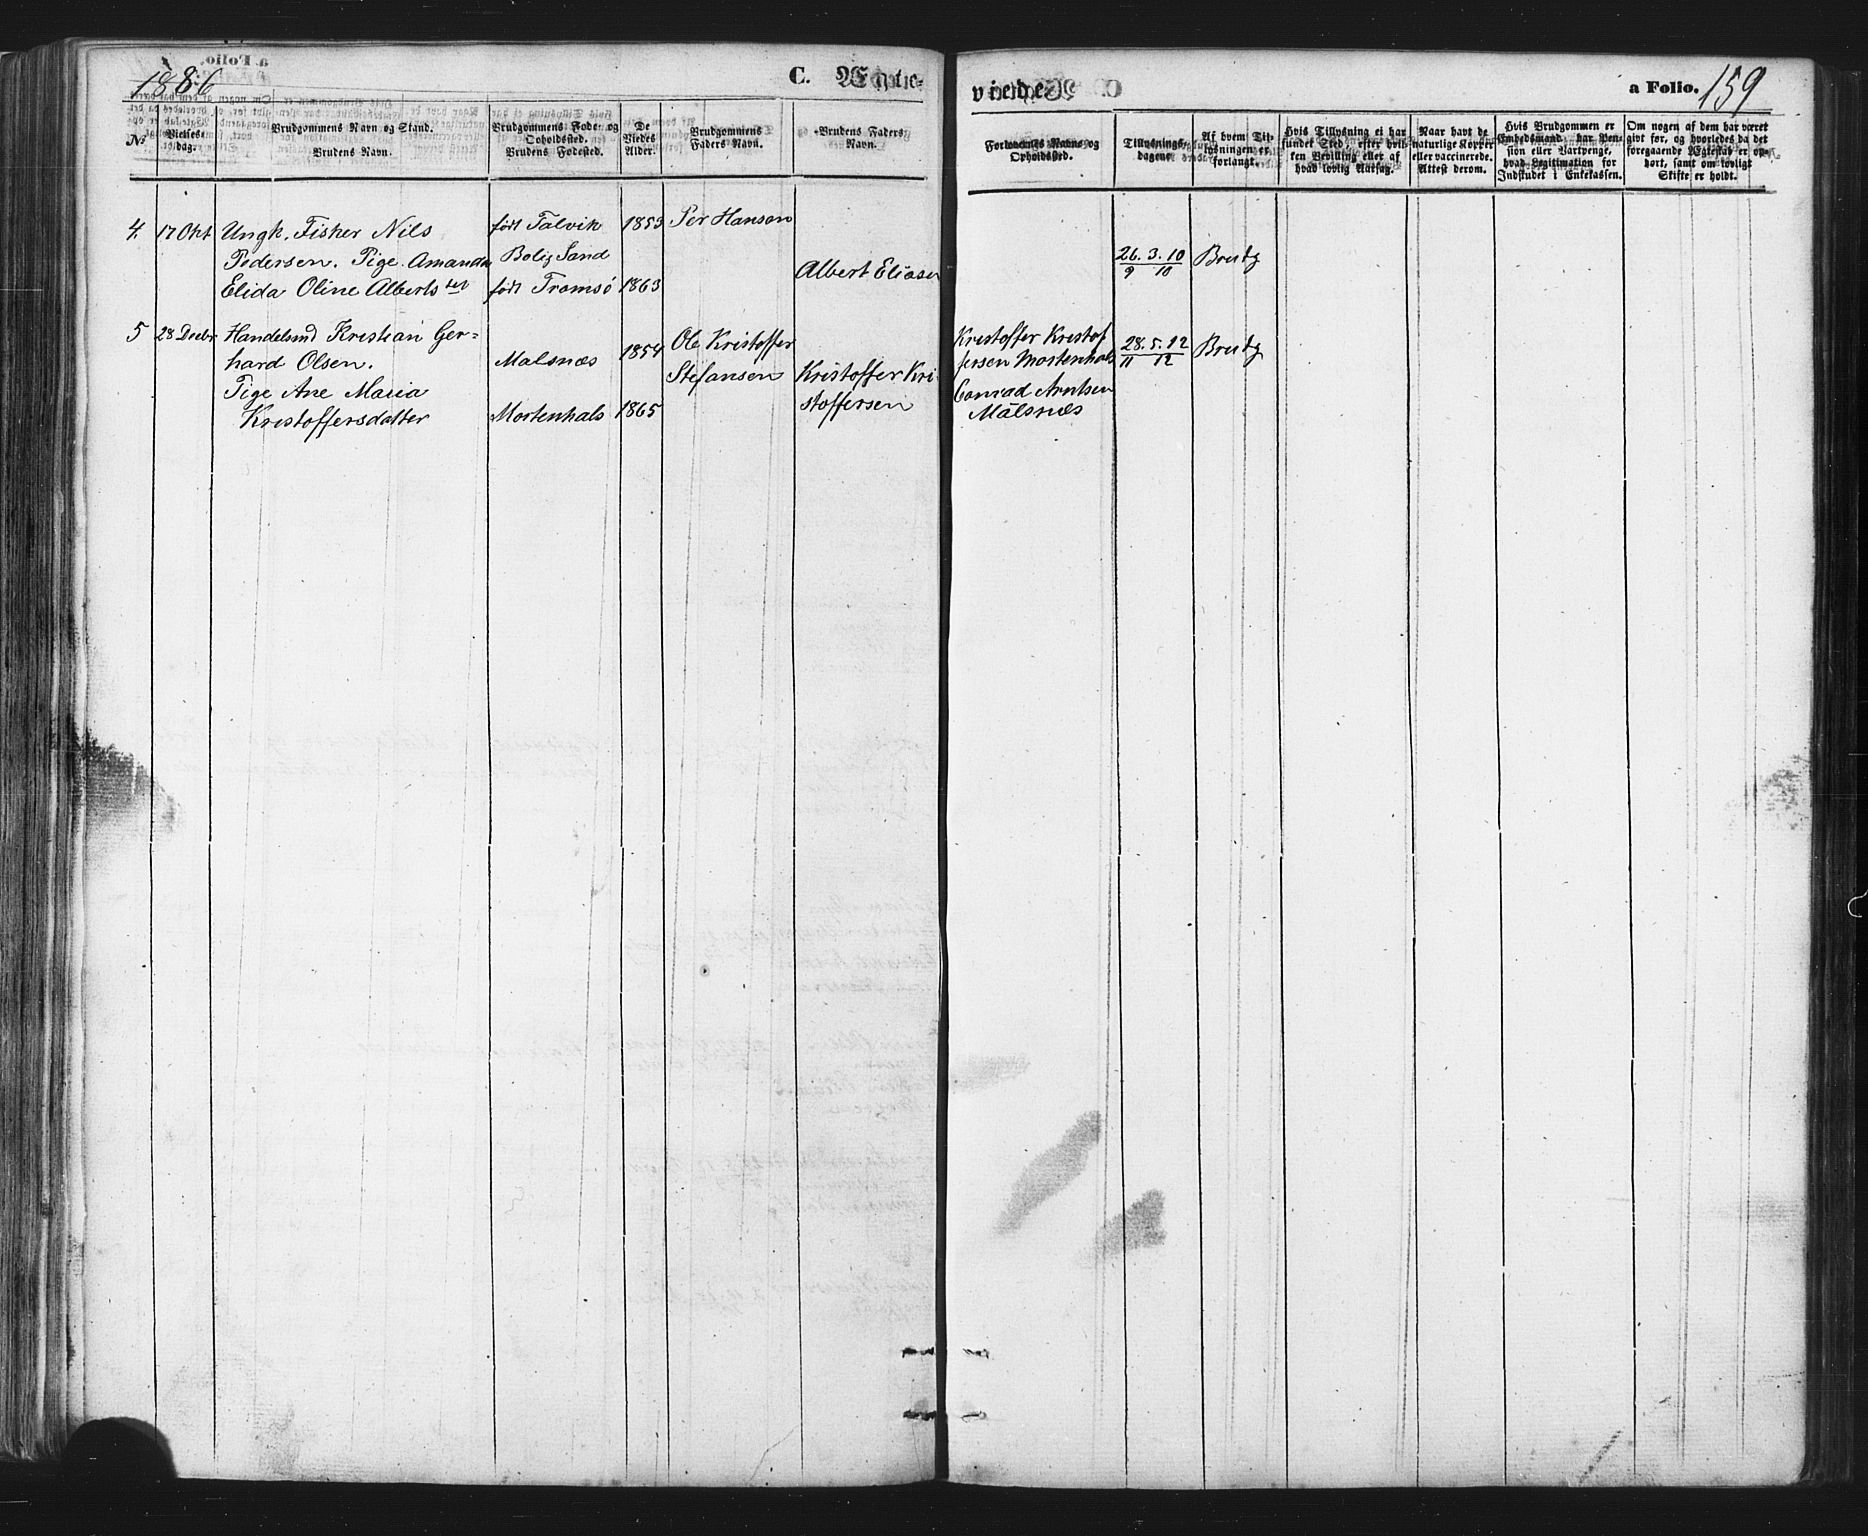 1886
C. Ægte-
viede.
a Folio. 159
№
Vielses-
dag.
Brudgommens Navn og Stand.
Brudens Navn.
Brudgommens Føde- og
Opholdssted.
Brudens Fødested.
De
Viedes
Alder.
Brudgommens
Faders Navn.
Brudens Faders
Navn.
Forlovernes Navne og
Opholdssted.
Tillysnings-
dagene.
Af hvem Til-
lysningen er
forlangt.
Hvis Tillysning ei har
fundet Sted, efter hvil-
ken Bevilling eller af
hvad lovlig Aarsag.
Naar havt de
naturlige Kopper
eller vaccinerede.
Attest derom.
Hvis Brudgommen er
Embedsmand, har Pen-
sion eller Vartpenge,
hvad Legitimation for
Indskudet i Enkekassen.
Om nogen af dem har været
gift før, og hvorledes da det
foregaaende Ægteskab er op-
hørt, samt om lovligt
Skifte er holdt.
4. 17 Okt Ungk. Fisker Nils født Talvik 1853 Per Hansen
Pedersen. Pige Amanda Bolig Sand Albert Eliasen 26. 3. 10 Brudg
9 10
Elida Oline Alberts dtr født Tromsø 1863
5 28 Decbr Handelsmd Kristian Ger-
hard Olsen. Malsnæs 1854 Ole Kristoffer
Stefansen
Pige Ane Maria
Kristoffersdatter Mortenhals 1865
Kristoffer Kri-
stoffersen
Kristoffer Kristof
fersen Mortenhals 28. 5. 12 Brudg
11 12
Conrad Arntsen
Målsnæs